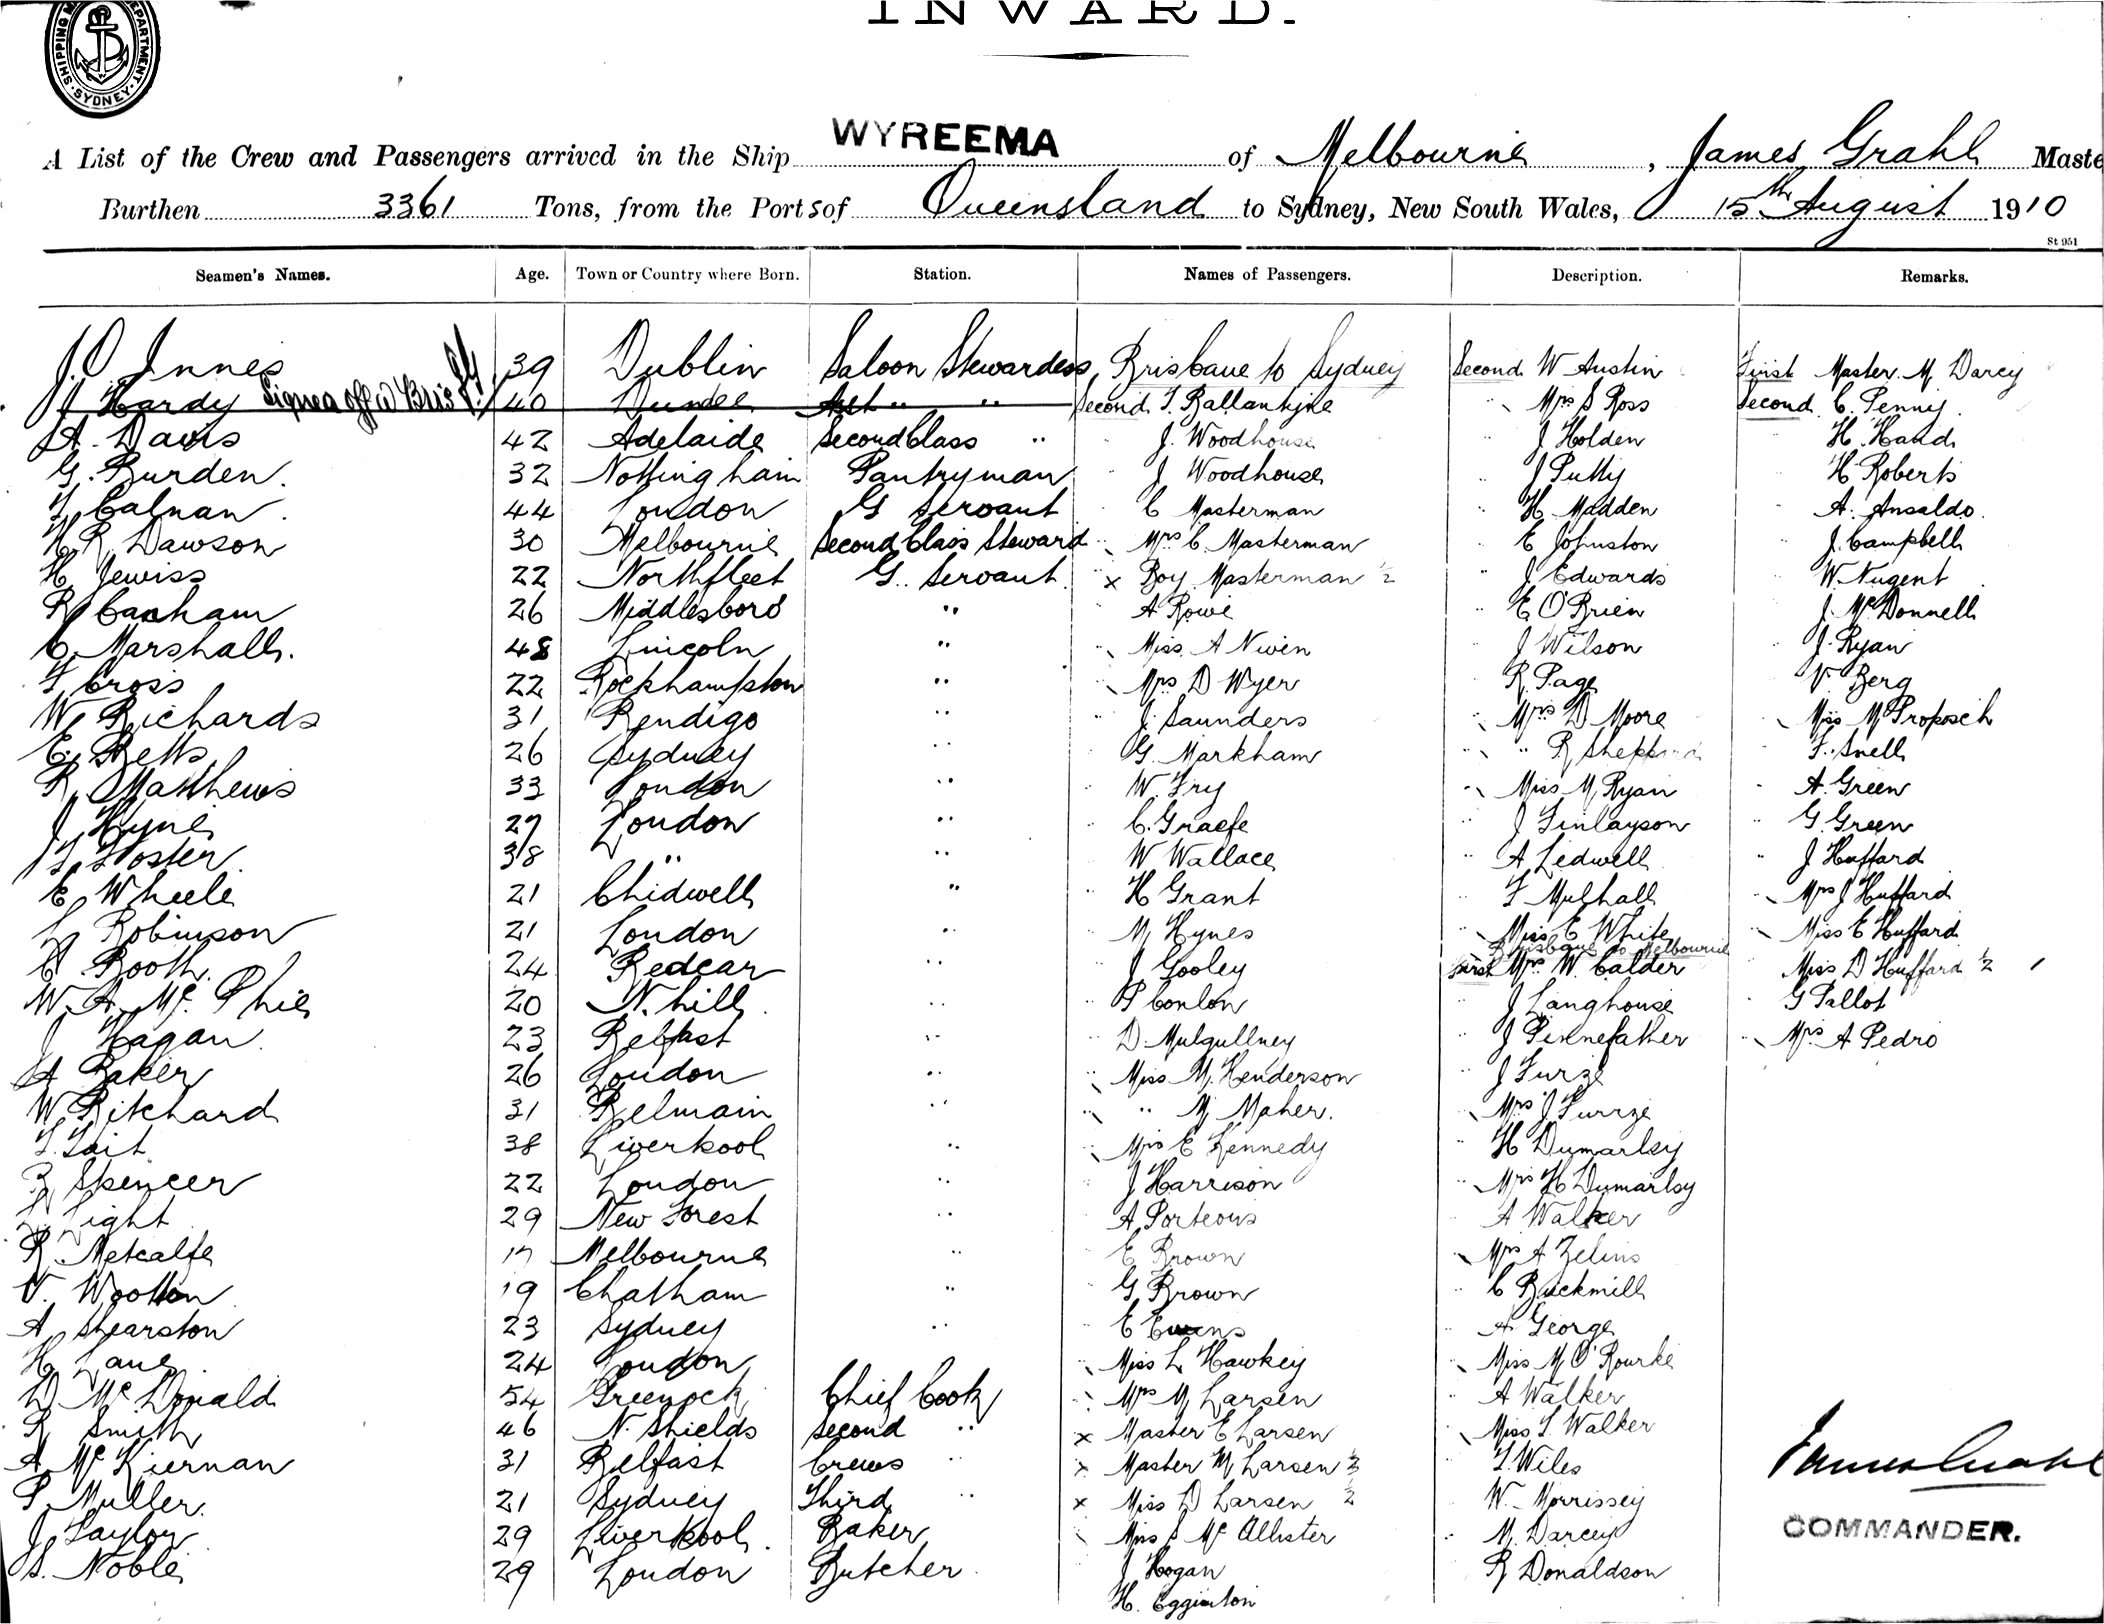 INWARD.
SHIPPING DEPARTMENT SYDNEY
A List of the Crew and Passengers arrived in the Ship WYREEMA of Melbourne, James Grahl Maste
Burthen 3361 Tons, from the Ports of Queensland to Sydney, New South Wales, 15th August 1910
St 951
Seamen's Names. Age. Town or Country where Born. Station. Names of Passengers. Description. Remarks.
J. O Innes 39 Dublin Saloon Stewardess, Brisbane to Sydney Second W Austin First Master. M. Darcy
J Hardy Signed off @ Bris 40 Dundee Asst " " Second T. Ballantyne " Mrs S Ross Second C. Penny.
A. Davis 42 Adelaide Second Class " " J. Woodhouse " J Holden " H. Hand
G. Burden. 32 Nottingham Pantryman " J Woodhouse " J Putty " H Roberts
T. Calnan. 44 London G Servant " C Masterman " H Madden " A. Ansaldo.
H. R. Dawson 30 Melbourne Second Class Steward " Mrs C. Masterman " E Johnston " J. Campbell
H. Jewiss 22 Northfleet G. Servant. x Boy Masterman 1/2 " J Edwards " W. Nugent
R Canham 26 Middlesboro " " A Rowe " E O'Brien " J. McDonnell
C. Marshall. 48 Lincoln " " Miss. A Niven " J Wilson " J. Ryan
T Cross 22 Rockhampton " " Mrs D Wyer R. Page " V. Berg
W. Richards 31 Bendigo " " J. Saunders " Mrs D Moore " Miss M Proposch
E. Betts 26 Sydney " " G. Markham " " R " F. Snell
R. Matthews 33 London " " W. Fry " Miss M. Ryan " A. Green
J Hyne 27 London " " C. Graefe " J Finlayson " G. Green
T. Foster. 38 " " " W Wallace " A Ledwell " J Huffard
E Wheele 21 Chidwell " " H Grant " F Mulhall " Mrs J Huffard
Robinson 21 London " " M Hynes " Miss E White " Miss E Huffard
Brisbane to Melbourne
C. Booth. 24 Redcar " " J Gooley First Mrs. W. Calder Miss D Huffard 1/2
W. A. Mc. Phie 20 N. hill " " P Conlon " J Langhouse " G Pallot
J Hagan. 23 Belfast " " D. Mulgullney " J Pennefather " Mrs. A Pedro
A Baker 26 London " " Miss M. Henderson " J Furze
W. Pitchard 31 Belmain " " " M Maher. " Mrs J Furrze
T. Tait 38 Liverpool " " Mrs E Kennedy " H Dumarlsy
Spencer 22 London " " J Harrison " Mrs H Dumarlsy
Light 29 New Forest " " A. Porteous " A Walker
R. Metcalfe 17 Melbourne " " E Brown " Mrs A Zelins
V. Wootton 19 Chatham " " G. Brown " C Buckmill
A Shearston 23 Sydney " " E Ewens " A George
H. Lane. 24 London " Miss L Hawkey " Miss M O'Rourke
D McDonald 54 Greenock Chief Cook " Mrs M Larsen " A Walker
R Smith 46 N. Shields Second " x Master E Larsen " Miss T. Walker
A McKiernan 31 Belfast Crews " x Master M Larsen 1/2 " T. Wiles
P. Muller. 21 Sydney Third " x Miss D Larsen 1/2 " W. Morrissey
J. Taylor 29 Liverpool. Baker " McAllister " M. Darcey
S. Noble 29 London Butcher J Hogan " R Donaldson
H. Egginton
James Grahl
COMMANDER.